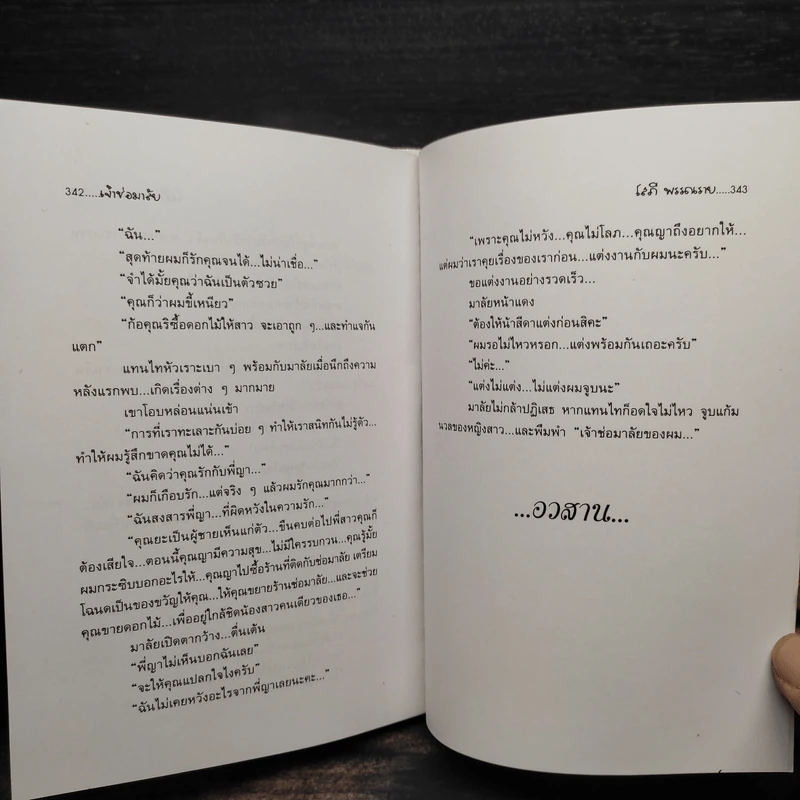 342.....เจ้าช่อมาลัย
“ฉัน...”
“สุดท้ายผมก็รักคุณจนได้...ไม่น่าเชื่อ...”
“จำได้มั้ยคุณว่าฉันเป็นตัวซวย”
“คุณก็ว่าผมขี้เหนียว”
“ก้อคุณริซื้อดอกไม้ให้สาว จะเอาถูก ๆ...และทำแจกัน
แตก”
แทนไทหัวเราะเบา ๆ พร้อมกับมาลัยเมื่อนึกถึงความ
หลังแรกพบ...เกิดเรื่องต่าง ๆ มากมาย
เขาโอบหล่อนแน่นเข้า
“การที่เราทะเลาะกันบ่อย ๆ ทำให้เราสนิทกันไม่รู้ตัว...
ทำให้ผมรู้สึกขาดคุณไม่ได้...”
“ฉันคิดว่าคุณรักกับพี่ญา...”
“ผมก็เกือบรัก...แต่จริง ๆ แล้วผมรักคุณมากกว่า...”
“ฉันสงสารพี่ญา...ที่ผิดหวังในความรัก...”
“คุณยะเป็นผู้ชายเห็นแก่ตัว...ขืนคบต่อไปพี่สาวคุณก็
ต้องเสียใจ...ตอนนี้คุณญามีความสุข...ไม่มีใครรบกวน...คุณรู้มั้ย
ผมกระซิบบอกอะไรให้...คุณญาไปซื้อร้านที่ติดกับช่อมาลัย เตรียม
โฉนดเป็นของขวัญให้คุณ...ให้คุณขยายร้านช่อมาลัย...และจะช่วย
คุณขายดอกไม้...เพื่ออยู่ใกล้ชิดน้องสาวคนเดียวของเธอ...”
มาลัยเปิดตากว้าง...ตื่นเต้น
“พี่ญาไม่เห็นบอกฉันเลย”
“จะให้คุณแปลกใจไงครับ”
“ฉันไม่เคยหวังอะไรจากพี่ญาเลยนะคะ...”
โสภี พรรณราย.....343
“เพราะคุณไม่หวัง...คุณไม่โลภ...คุณญาถึงอยากให้...
แต่ผมว่าเราคุยเรื่องของเราก่อน...แต่งงานกับผมนะครับ...”
ขอแต่งงานอย่างรวดเร็ว...
มาลัยหน้าแดง
“ต้องให้น้าสีดาแต่งก่อนสิคะ”
“ผมรอไม่ไหวหรอก...แต่งพร้อมกันเถอะครับ”
“ไม่ค่ะ...”
“แต่งไม่แต่ง...ไม่แต่งผมจูบนะ”
มาลัยไม่กล้าปฏิเสธ หากแทนไทก็อดใจไม่ไหว จูบแก้ม
นวลของหญิงสาว...และพึมพำ “เจ้าช่อมาลัยของผม...”
...อวสาน...